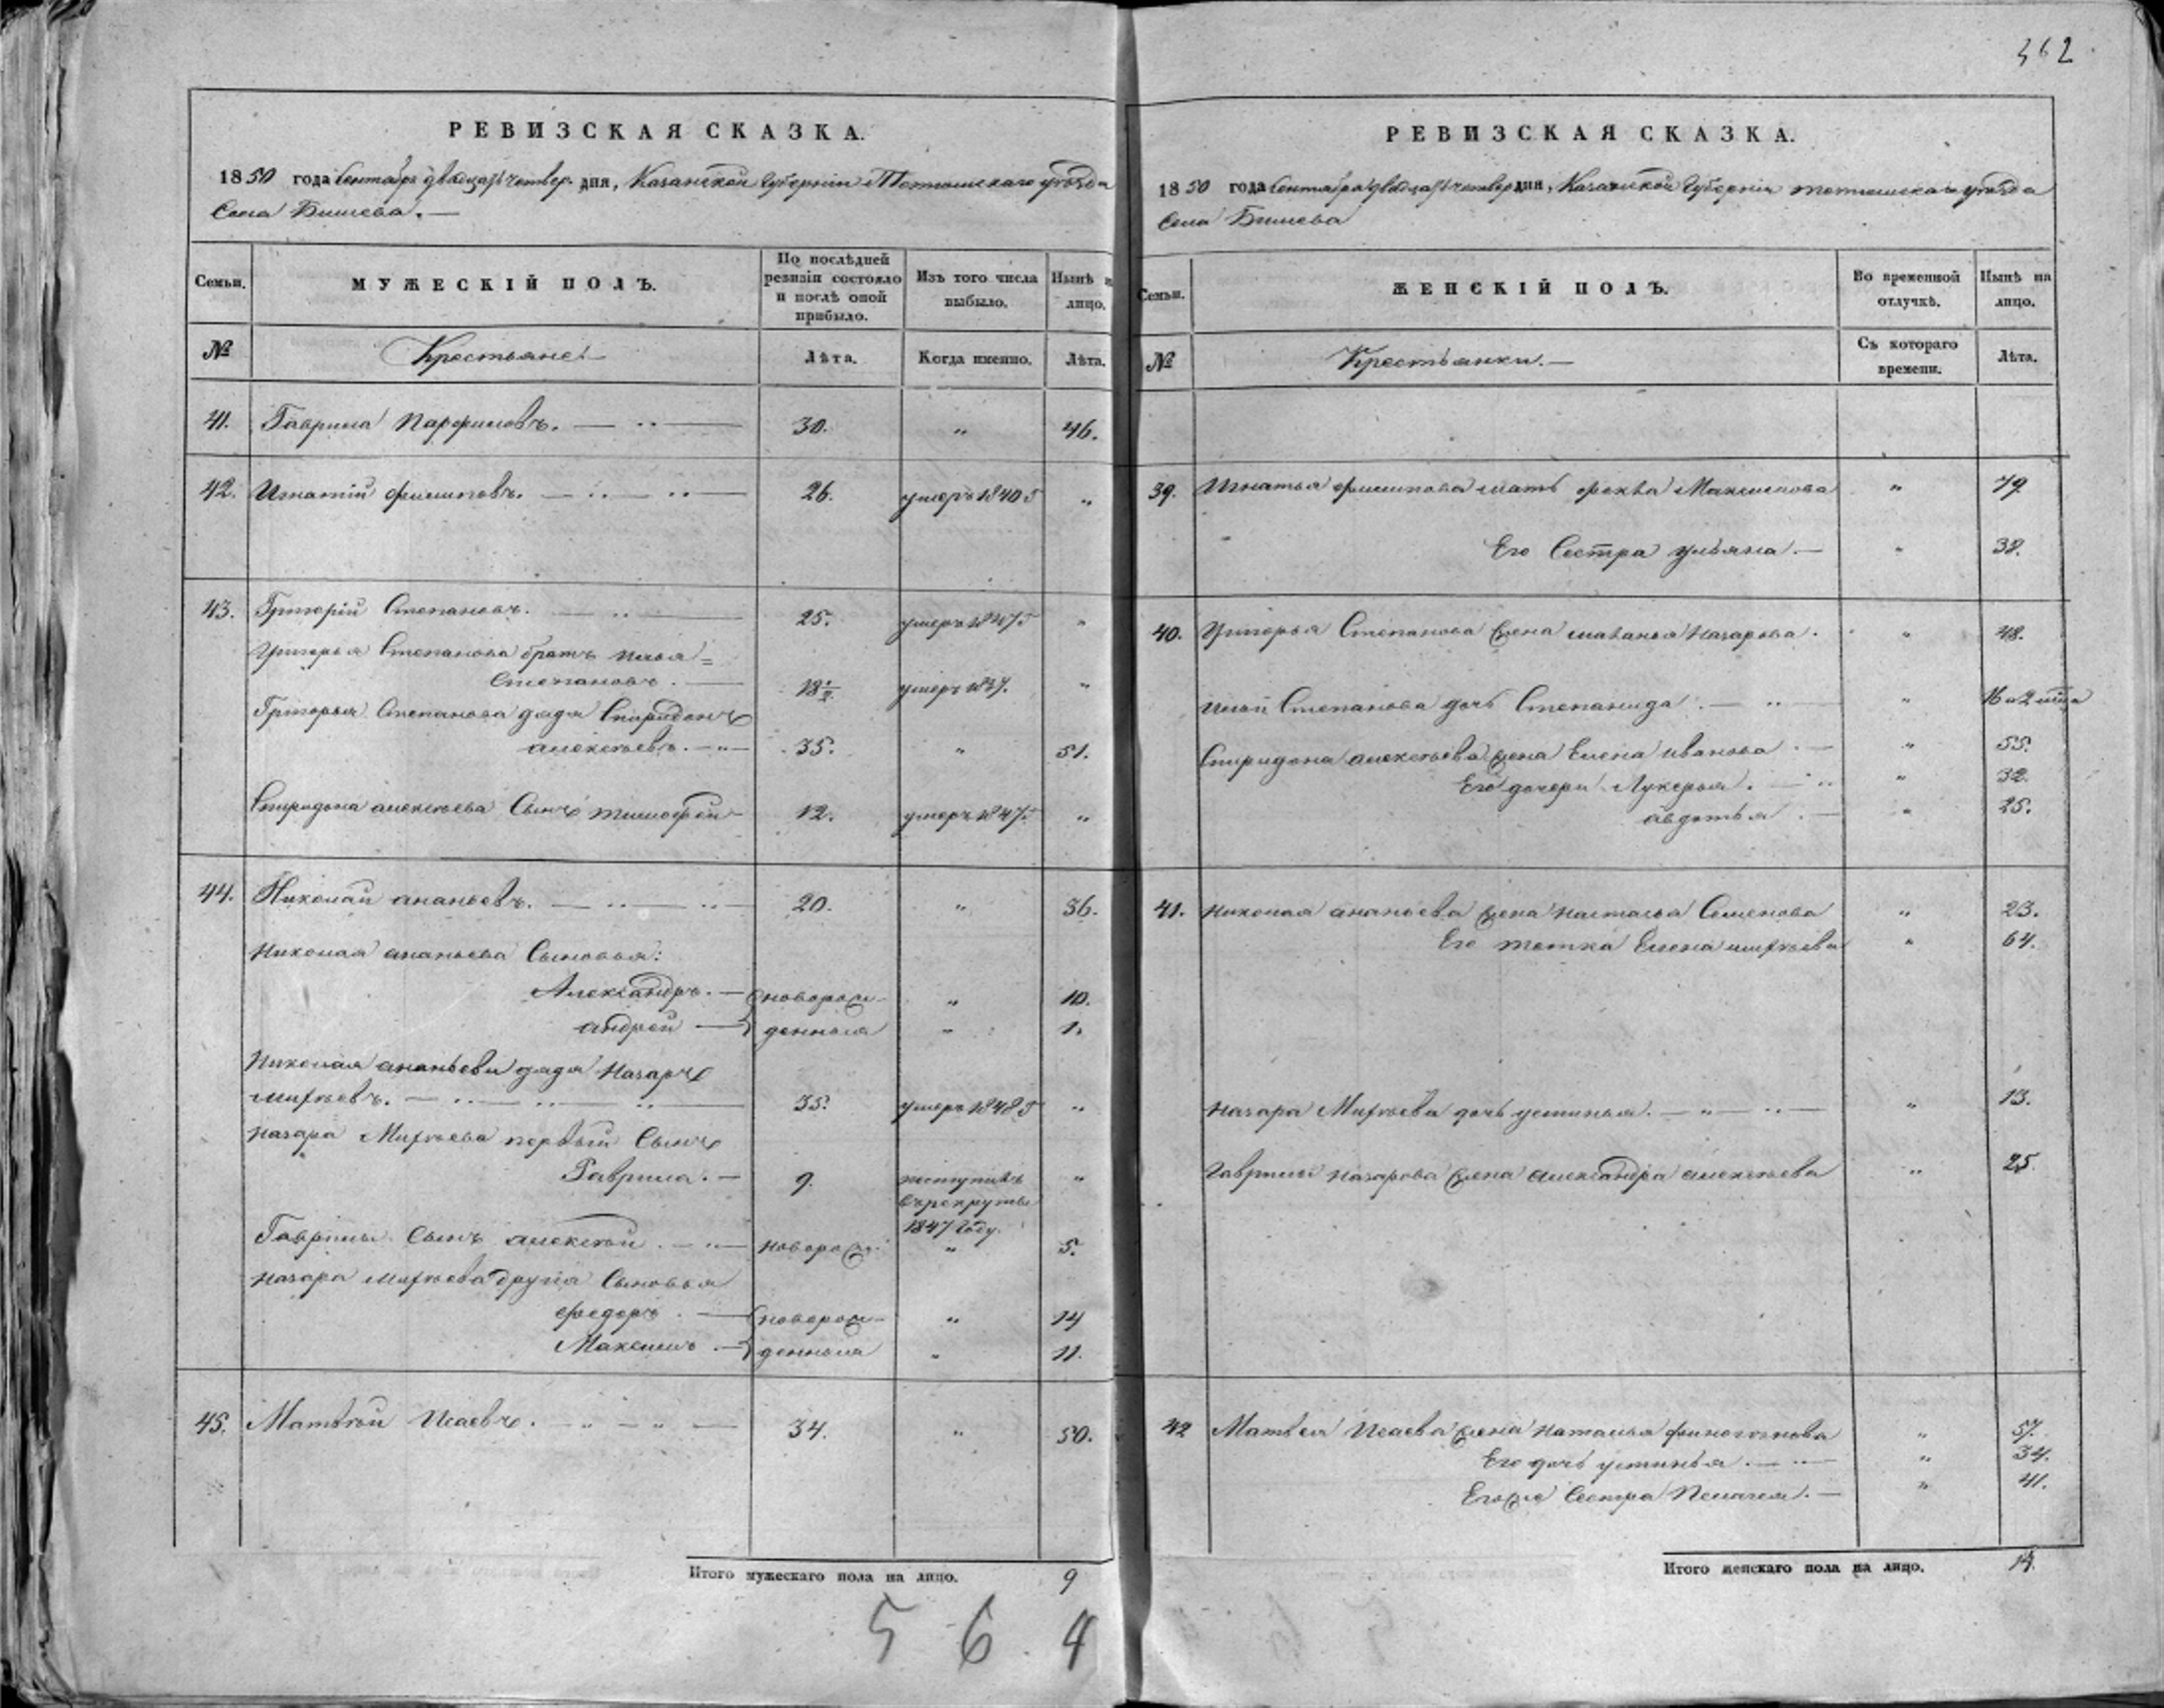 362
РЕВИЗСКАЯ СКАЗКА.
1850 года Сентября двадцать четвер. дня, Казанской Губернiи Тетюшскаго уѣзда
Села Бишева.
Семьи.
МУЖЕСКIЙ ПОЛЪ.
По послѣдней ревизiи состояло и послѣ оной прибыло.
Изъ того числа выбыло.
Нынѣ на лицо.
№
Крестьяне
Лѣта.
Когда именно.
Лѣта.
41. Гаврила Парфиловъ. 30. " 46.
42. Игнатiй Филиповъ. 26. умеръ 1840 "
43. Григорiй Степановъ. 25. умеръ 1847 "
Григорья Степанова братъ Илья
Степановъ. 18 умеръ 1837. "
Григорья Степанова дядя Спиридонъ
Алексѣевъ. 35. " 51.
Спиридона Алексѣева Сынъ Тимофей 12. умеръ 1847. "
44. Николай Ананьевъ. 20. " 36.
Николая Ананьева Сыновья:
Александръ. новорож- " 10.
Андрей денныя " 1.
Николая Ананьева дядя Назаръ
Михѣевъ. 35. умеръ 1848 "
Назара Михѣева первый Сынъ
Гаврила. 9. поступилъ "
въ рекруты
1847 Году.
Гаврилы Сынъ Алексѣй новорож. " 5.
Назара Михѣева другiя Сыновья
Федоръ новорож- " 14
Максимъ денныя " 11.
45. Матвѣй Исаевъ. 34. " 50.
Итого мужескаго пола на лицо. 9
5 6 4
РЕВИЗСКАЯ СКАЗКА.
1850 года Сентября двадцать четвер дня, Казанской Губернiи Тетюшскаго уѣзда
Села Бишева
Семьи.
ЖЕНСКIЙ ПОЛЪ.
Во временной отлучкѣ.
Нынѣ на лицо.
№
Крестьянки.
Съ котораго времени.
Лѣта.
39. Игнатья Филипова мать Фекла Максимова " 79
Его Сестра Ульяна. " 38.
40. Григорья Степанова жена Маланья Назарова. " 48.
Ильи Степанова дочь Степанида. " 16 и 2 мѣца
Спиридона Алексѣева жена Елена Иванова. " 55.
Его дочери Лукерья. " 32.
Авдотья " 25.
41. Николая Ананьева жена Настасья Семенова " 23.
Его тетка Елена Михѣева " 64.
Назара Михѣева дочь Устинья. " 13.
Гаврилы Назарова жена Александра Алексѣева " 25.
42 Матвея Исаева жена Наталья Финогенова " 57.
Его дочь Устинья. " 34.
Его же Сестра Пелагея. " 41.
Итого женскаго пола на лицо. 14.